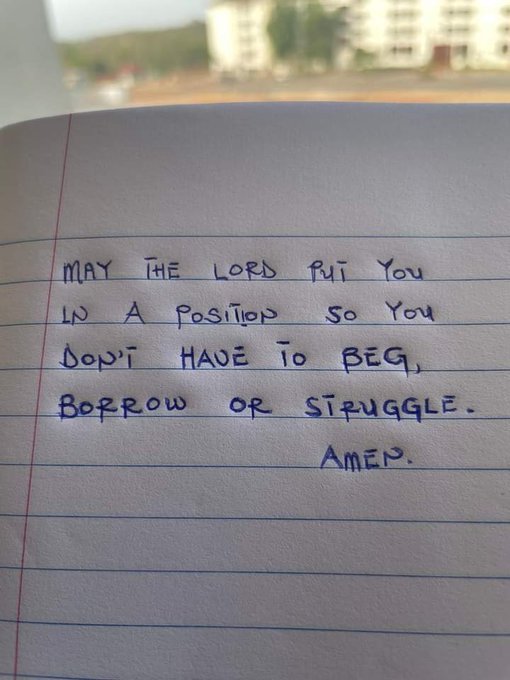 MAY THE LORD PUT YOU
IN A POSITION SO YOU
DON'T HAVE TO BEG,
BORROW OR STRUGGLE.
AMEN.